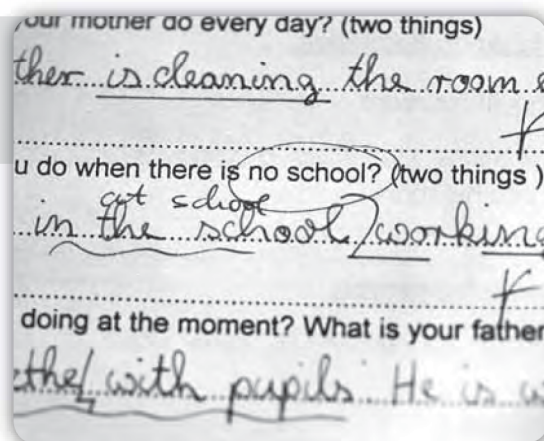 our mother do every day? (two things)
ther is cleaning the room
u do when there is no school? (two things )
at school
in the school working
doing at the moment? What is your father
the with pupils He is